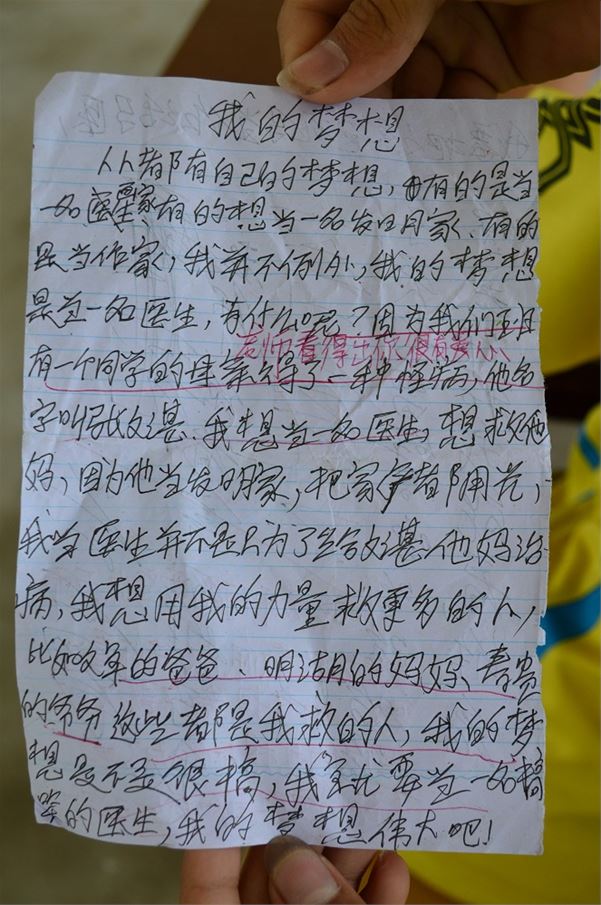 我的梦想
人人都有自己的梦想,有的是当
一名医家有的想当一名发明家、有的
是当作家,我并不例外,我的梦想
是当一名医生,有什么呢?因为我们班
老师看得出你很有爱心
有一个同学的母亲得了一种怪病,他名
字叫张文湛.我想当一名医生,想救他
妈,因为他当发明家,把家产都用光,
我当医生并不是只为了给文湛他妈治
病,我想用我的力量救更多的人,
比如文军的爸爸、明洁的妈妈、春贵
的爷爷这些都是我救的人,我的梦
想是不是很搞,我就要当一名搞
笑的医生,我的梦想伟大吧!